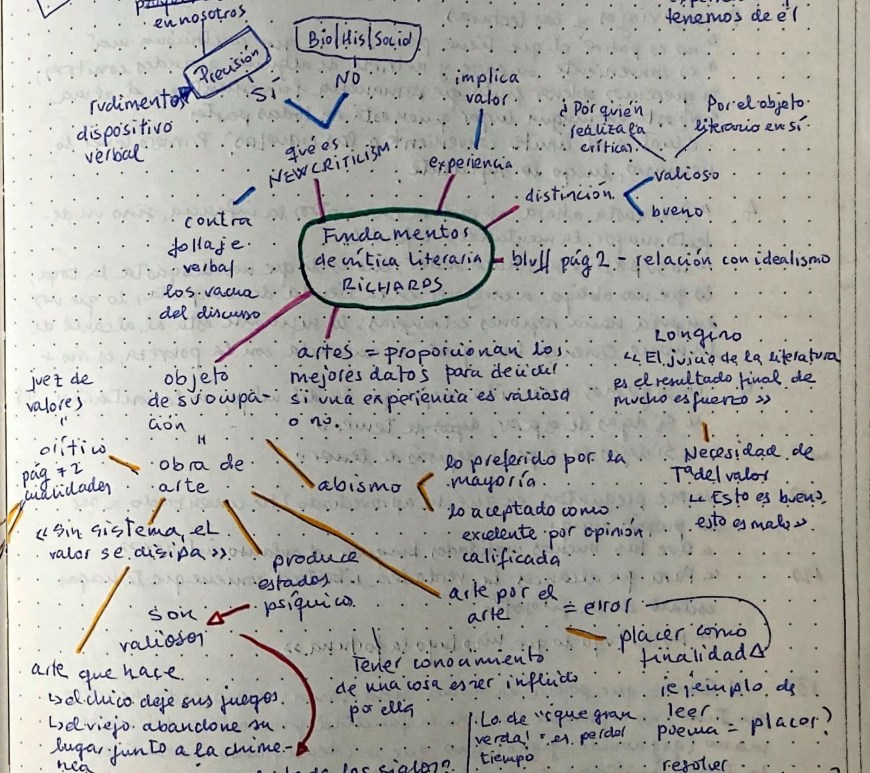 en nosotros
Precisión
Bio/dis/social
tenemos de él
rudimento
dispositivo
verbal
SÍ
NO
qué es
NEW CRITICISM
implica
valor
experiencia
¿Por quién
realiza la
crítica?
Por el objeto
literario en sí.
distinción
valioso
bueno
contra
follaje
verbal
los vacua
del discurso
Fundamentos
de crítica literaria
RICHARDS
bluff pág 2 - relación con idealismo
artes = proporcionan los
mejores datos para decidir
si una experiencia es valiosa
o no.
Longino
« El juicio de la literatura
es el resultado final de
mucho esfuerzo »
Necesidad de
Tª del valor
« Esto es bueno,
esto es malo »
juez de
valores
"
crítico
pág 72
cualidades
objeto
de su ocupa-
ción
"
obra de
arte
abismo
lo preferido por la
mayoría
lo aceptado como
excelente por opinión
calificada
« Sin sistema, el
valor se disipa »
produce
estados
psíquico.
son
valiosos
arte por el
arte
= error
placer como
finalidad
arte que hace
↳ el chico deje sus juegos
↳ el viejo abandone su
lugar junto a la chime-
nea
Tener conocimiento
de una cosa es ser influido
por ella
La de "¡que gran
verdad!" es perder
tiempo
¿ejemplo de
leer
poema = placer?
resolver